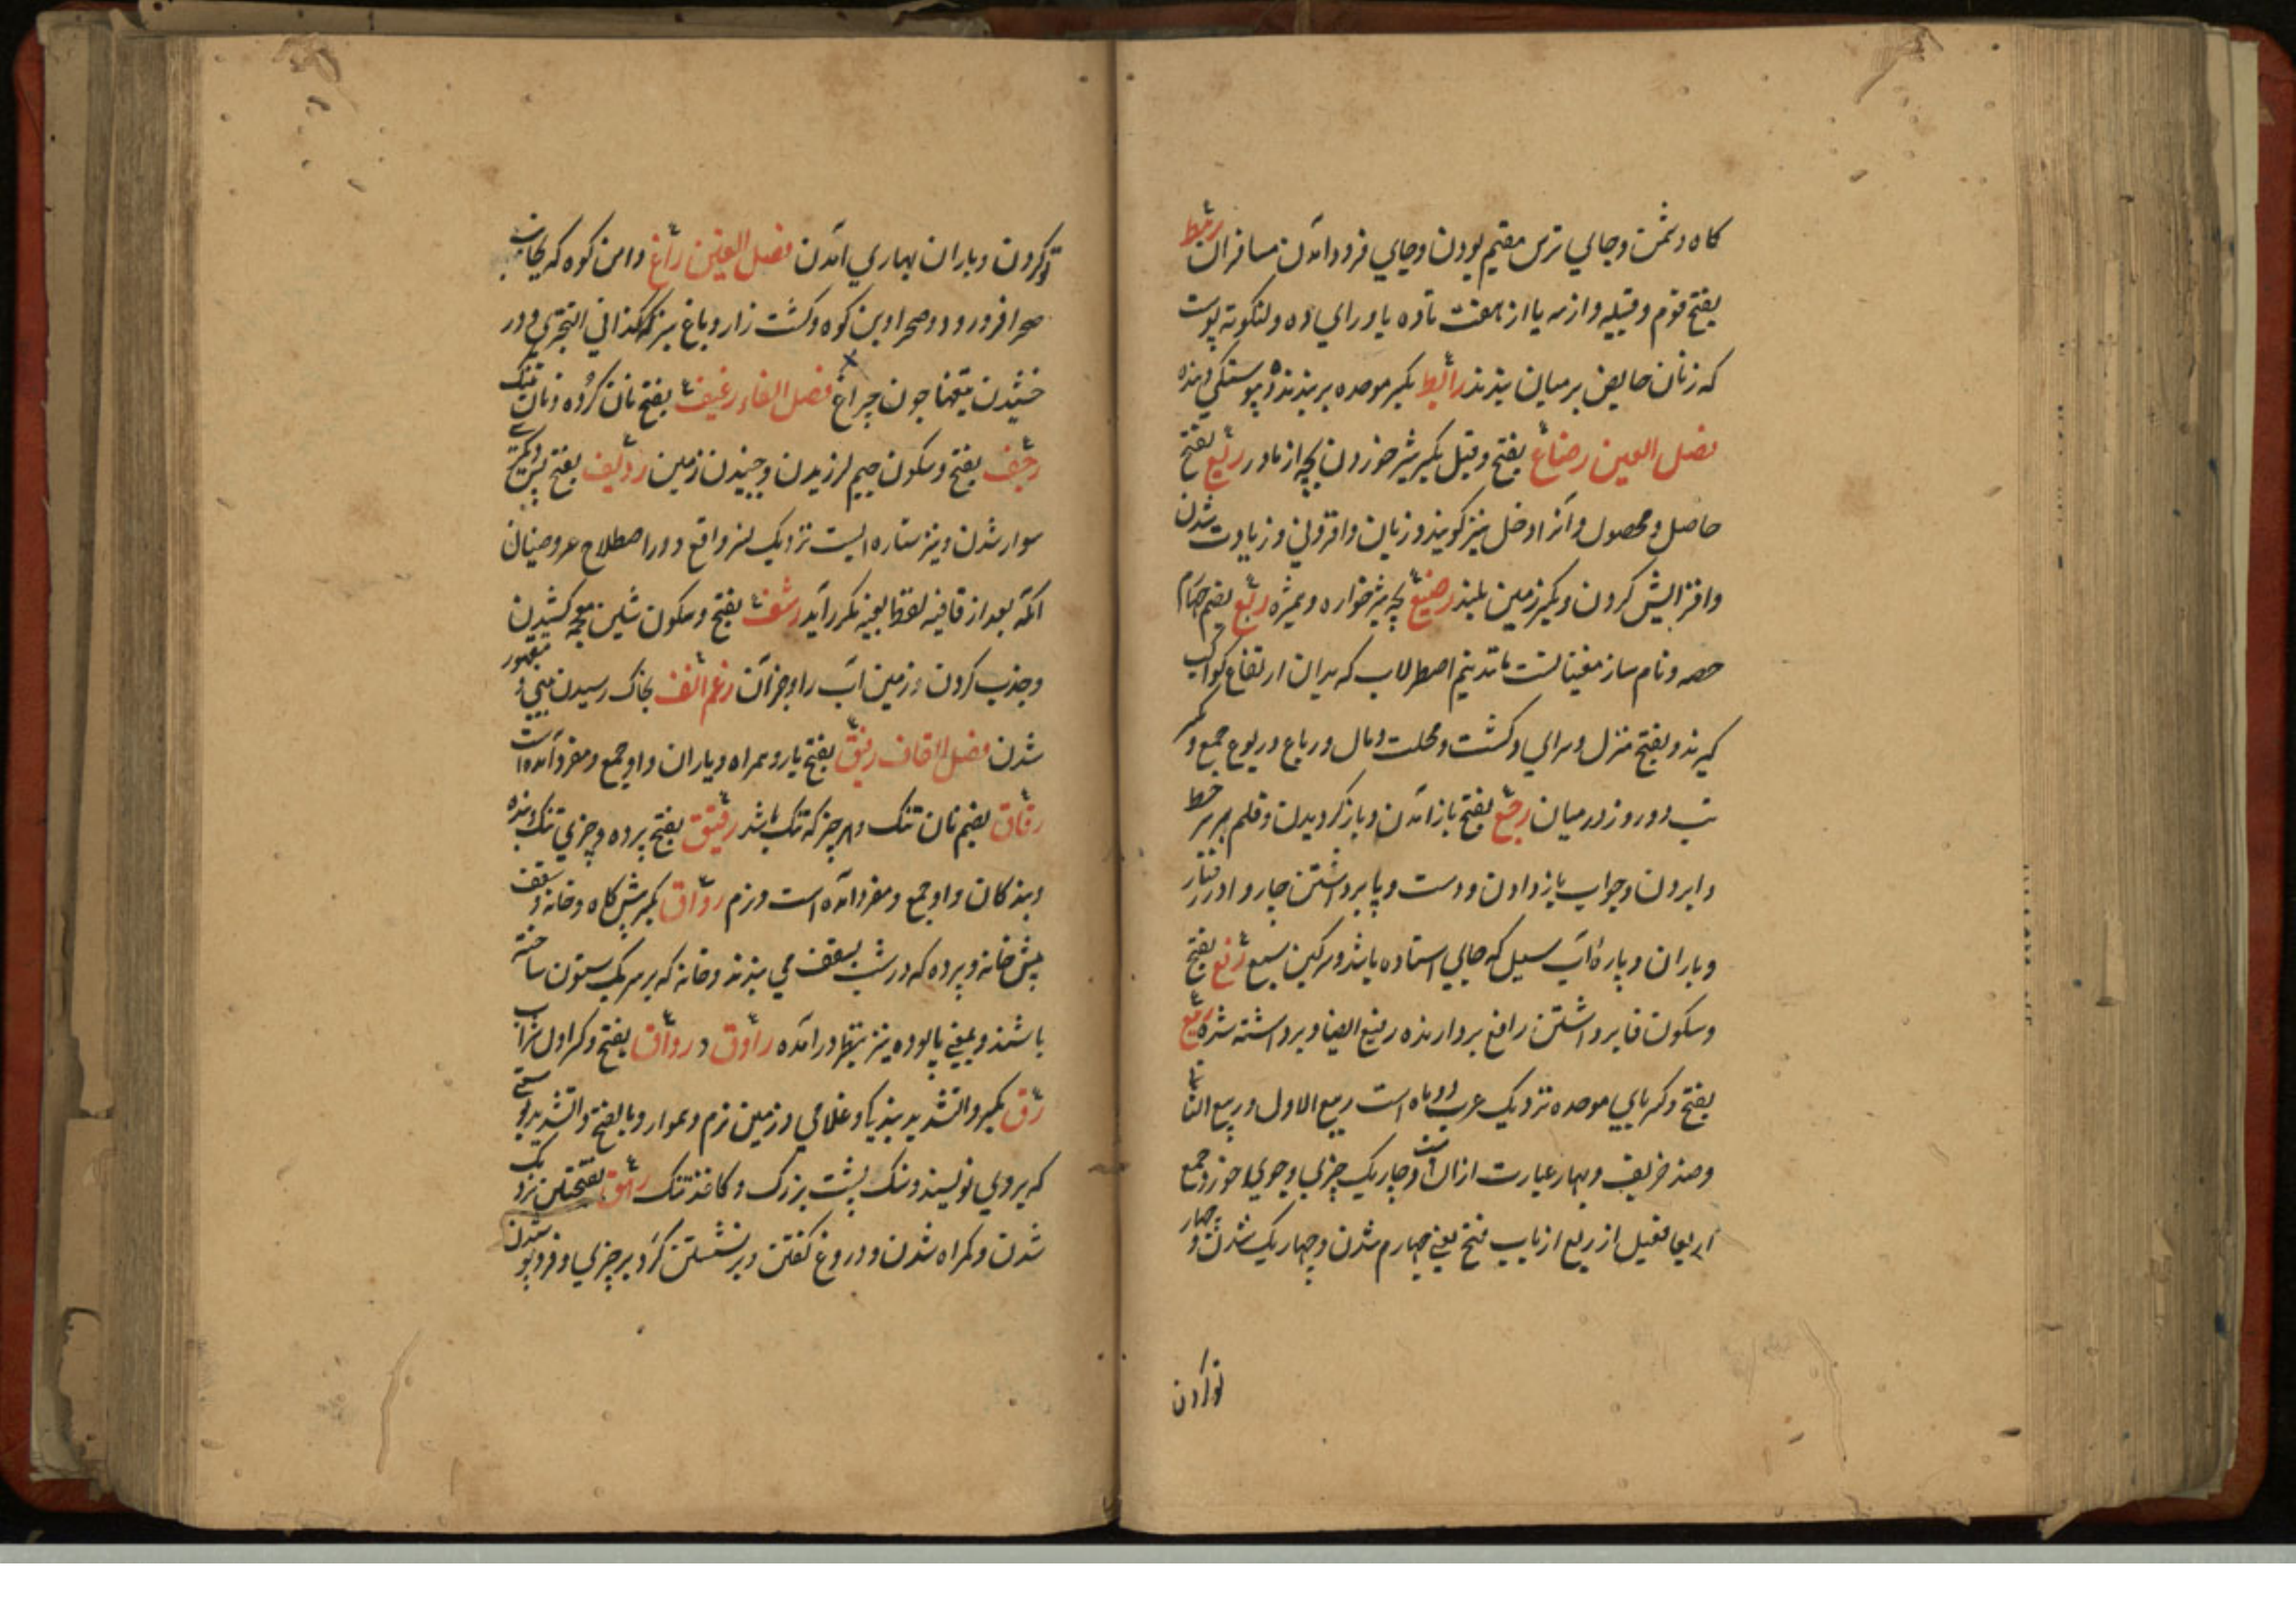 کاه و شمت و جای ترس مقیم بودن و جای فرود آمدن مسافران رهط
بفتح قوم و قبیله و از سه یا از هفت تا ده یا ورای ده و لنکوته پوست
که زنان حایض بر میان بندند رابط بکسر موحده بربندنده و پیوستکی دهنده
فصل العین رضاع بفتح و قیل بکسر شیر خوردن بچه از مادر ریع بفتح
حاصل و محصول و آنرا دخل نیز کویند و زیان و افزونی و زیادت شدن
و افزایش کردن و بکسر زمین بلند رضیع بچه شیرخواره و همشیره ربع بضم چهارم
حصه و نام ساز مغنیانست مانند نیم اصطرلاب که بدان ارتفاع کواکب
کیرند و بفتح منزل و سرای و کشت و محلت و مال و رباع و ربوع جمع و بکسر
تب دو روز در میان رجع بفتح باز آمدن و باز کردیدن و قلم بر سر خط
و ابردن و جواب باز دادن و دست و پا برداشتن چاروا در رفتار
و باران و پارهٔ آب سیل که جایی استاده باشد و سرکین سبع رفع بفتح
و سکون فا برداشتن رافع بردارنده رفیع ایضا و برداشته شده ربیع
بفتح و کسر بای موحده نزدیک عرب دو ماه است ربیع الاول و ربیع الثانی
و ضد خریف و بهار عبارت ازان است و چار یک چیزی و جوی خورد جمع
اربعا فعیل از ربع از باب فتح یعنی چهارم شدن و چهار یک شدن و چهار
تو کردن
تو کردن و باران بهاری آمدن فصل الغین راغ دامن کوه که بجانب
صحرا فرو رود و صحرا و بن کوه و کشت زار و باغ نیز که کذا فی التبختری و در
خشیدن تیغها چون چراغ فصل الفاء رغیف بفتح نان کرده و نان تنک
رجف بفتح و سکون جیم لرزیدن و جنبیدن زمین ردیف بفتح پس دیکری
سوار شدن و نیز ستاره ایست نزدیک نسر واقع و در اصطلاح عروضیان
آنکه بعد از قافیه لفظا بعینه مکرر آید رشف بفتح و سکون شین معجمه کشیدن
و جذب کردن و زمین آب را و جز آن رغم انف بخاک رسیدن بینی و مقهور
شدن فصل القاف رفیق بفتح یار و همراه و یاران و او جمع و مفرد آمده است
رقاق بضم نان تنک و هر چیز که تنک باشد رقیق بفتح پرده و چیزی تنک و بنده
و بندکان و او جمع و مفرد آمده است و نرم رواق بکسر پیش کاه و خانه و سقف
پیش خانه و پرده که در شب بسقف می بندند و خانه که بر سر یک ستون ساخته
باشند و بمعنی پالوده نیز بنظر درآمده راوق و رواق بفتح و کسر اول شراب
رق بکسر و التشدید بندیکی و غلامی و زمین نرم و هموار و بالفتح و التشدید پوستی
که بر وی نویسند و سنک پشت بزرک و کاغذ تنک رهق بفتحتین نزدیک
شدن و کمراه شدن و دروغ کفتن و برنشستن کرد بر چیزی و فرو پوشیدن